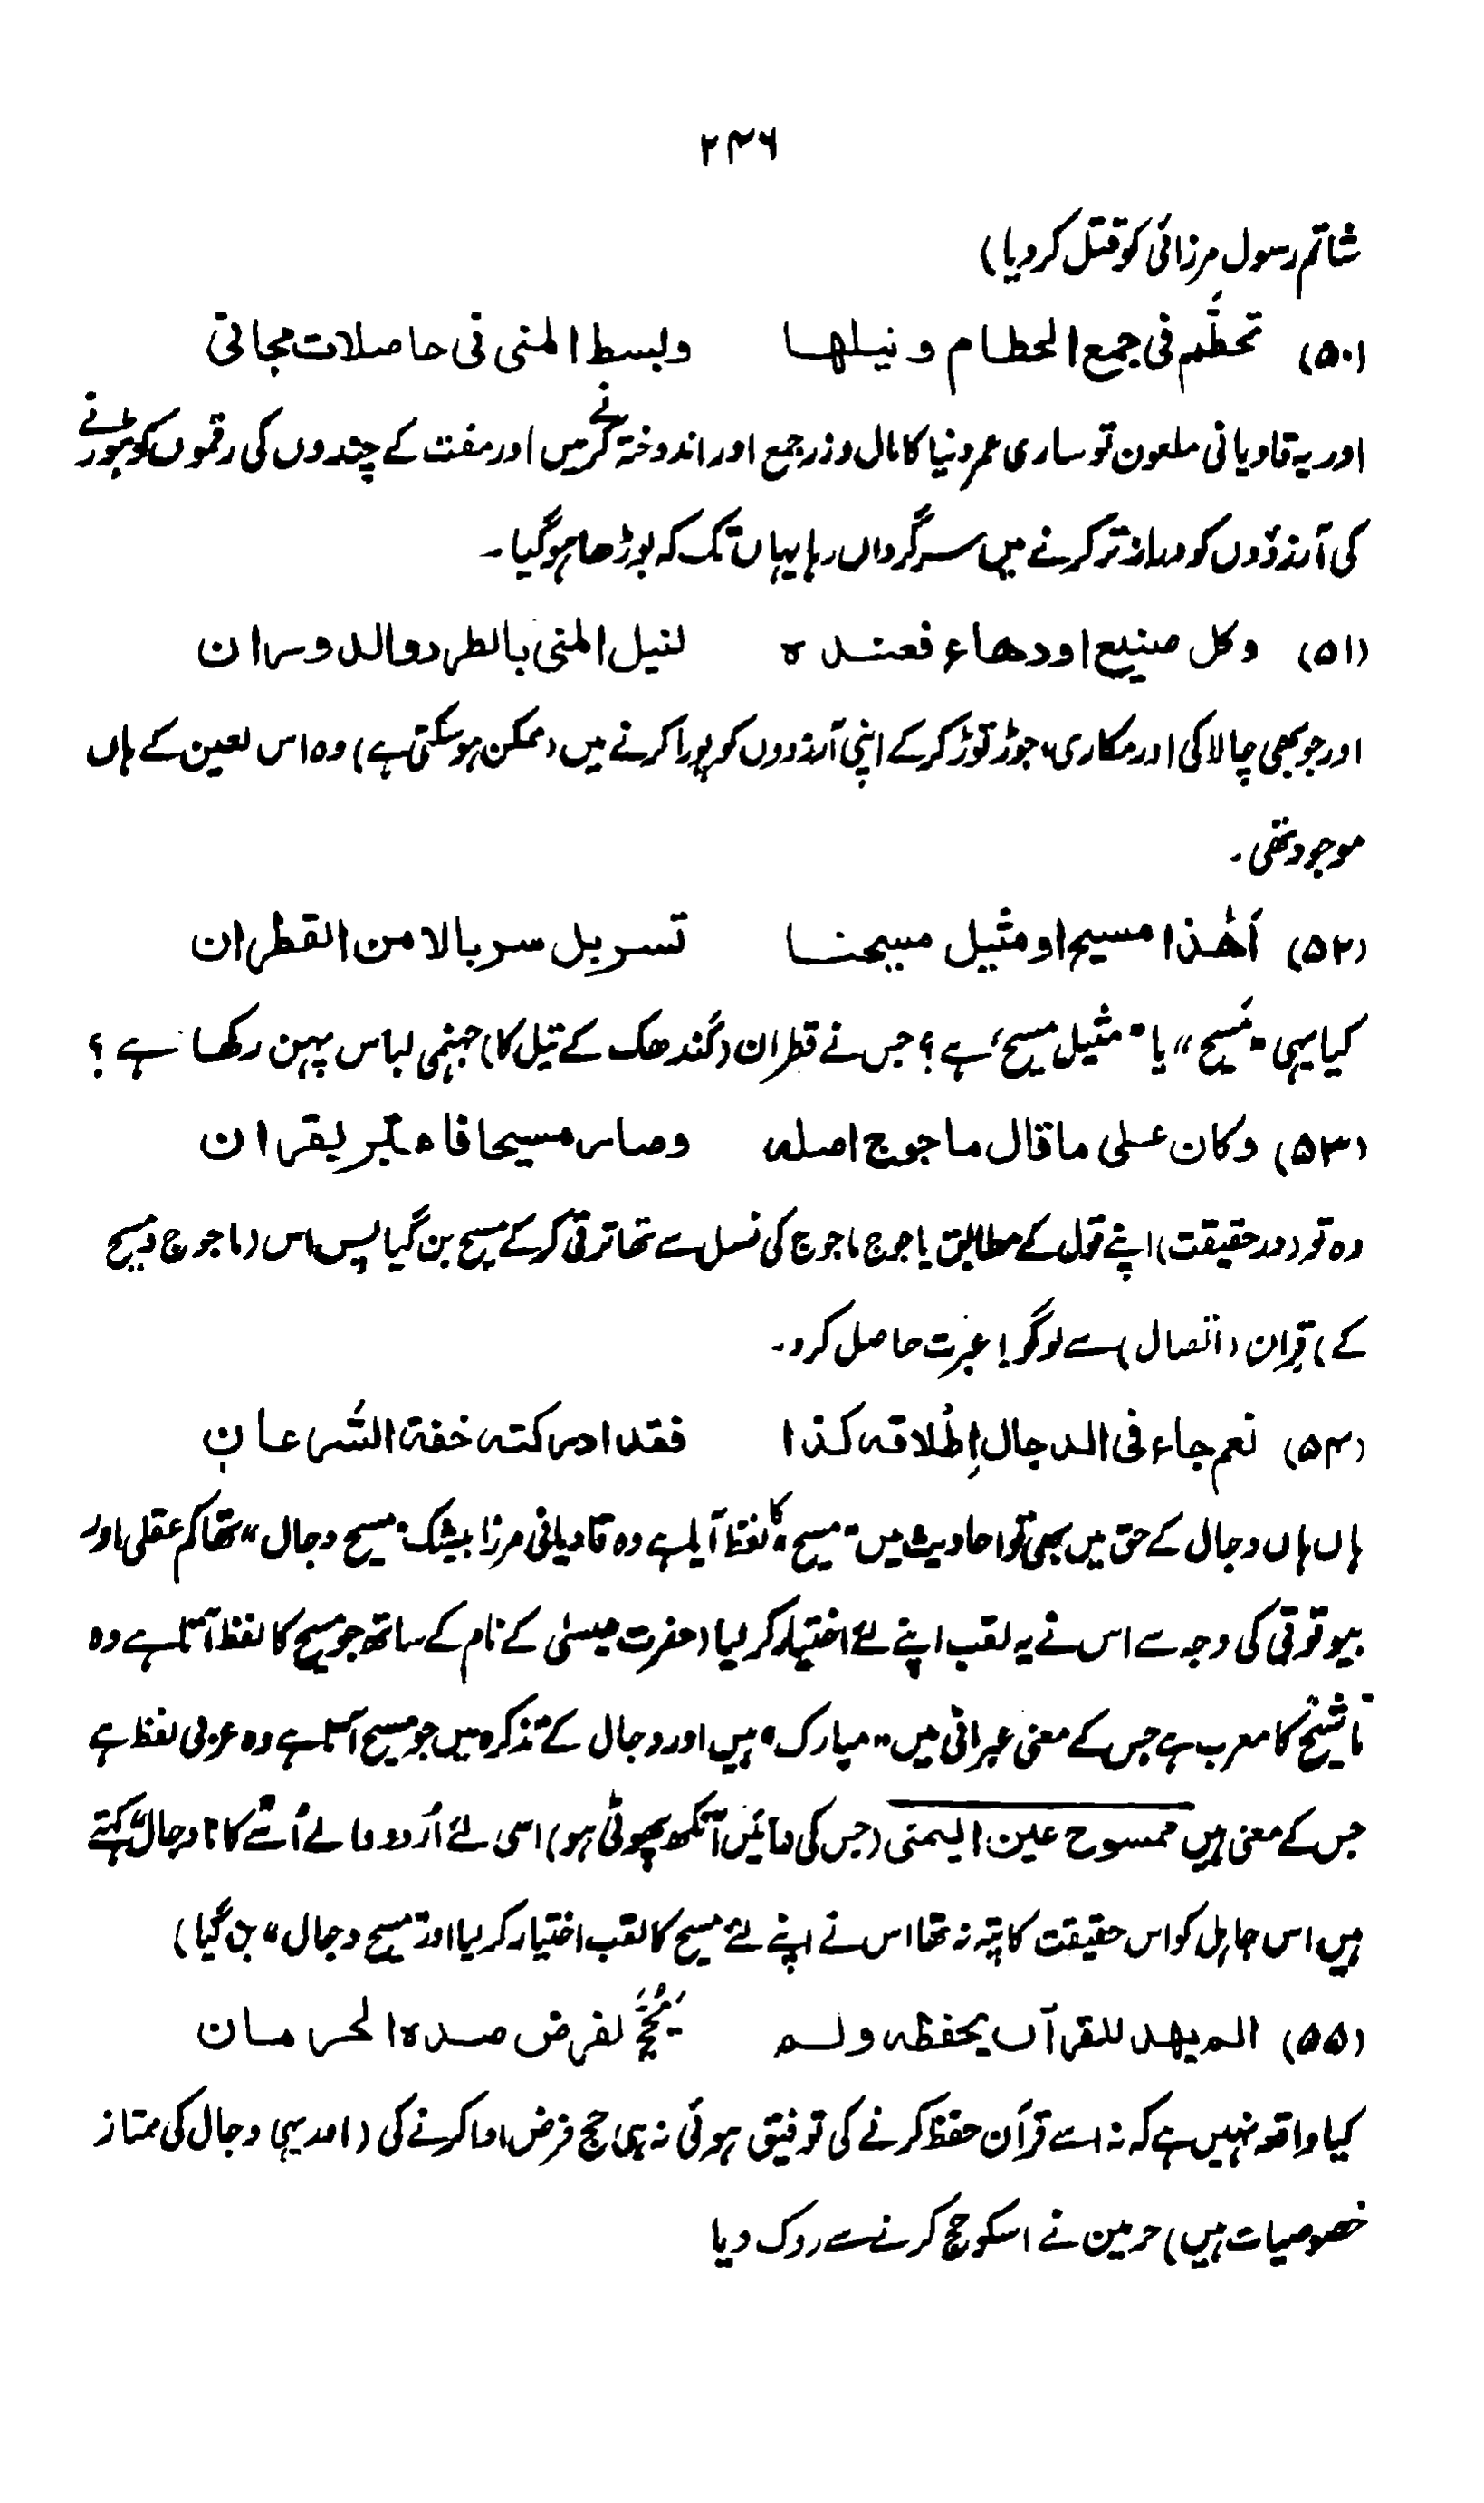 ۲۴۶
شاتم رسول مرزائی کو قتل کر دیا)
(۵۰) تحطَّم فی جمع الحطام و نیلها وبسط المنی فی حاصلات مجانی
اور یہ قادیانی ملعون تو ساری عمر دنیا کا مال وزر جمع اور اندوختہ کرنے میں اور مفت کے چندوں کی رقموں کو بٹورنے
کی آرزؤوں کو دراز تر کرنے میں سرگرداں رہا یہاں تک کہ بوڑھا ہو گیا۔
(۵۱) وکل صنیع او دهاء فعنده لنیل المنی بالطرد والدوران
اور جو بھی چالاکی اور مکاری، جوڑ توڑ کر کے اپنی آرزووں کو پورا کرنے میں (ممکن ہو سکتی ہے) وہ اس لعین کے ہاں
موجود تھی۔
(۵۲) أهٰذا مسیح او مثیل مسیحنا تسربل سربالا من القطران
کیا یہی "مسیح" یا "مثیل مسیح" ہے؟ جس نے قطران (گندھک کے تیل کا) جہنمی لباس پہن رکھا ہے؟
(۵۳) وکان علی ما قال ماجوج اصله وصار مسیحا فاعتبر بقران
وہ تو (در حقیقت) اپنے قول کے مطابق یاجوج ماجوج کی نسل سے تھا ترقی کر کے مسیح بن گیا پس اس (ماجوج و مسیح
کے) قِران (اتصال) سے لوگو! عبرت حاصل کرو۔
(۵۴) نعم جاء فی الدجال إطلاقه کذا فقد ادرکته خفة السُّرعان
ہاں ہاں دجال کے حق میں بھی تو احادیث میں "مسیح" کا لفظ آیا ہے وہ قادیانی مرزا بیشک "مسیح دجال" تھا کم عقلی اور
بیوقوفی کی وجہ سے اس نے یہ لقب اپنے لئے اختیار کر لیا (حضرت عیسیٰ کے نام کے ساتھ جو مسیح کا لفظ آتا ہے وہ
ماشیح کا معرب ہے جس کے معنی عبرانی میں "مبارک" ہیں اور دجال کے تذکرہ میں جو مسیح آتا ہے وہ عربی لفظ ہے
جس کے معنی ہیں ممسوح عین الیمنی (جس کی دائیں آنکھ پھوٹی ہو) اسی لئے اُردو والے اُسے "کانا دجال" کہتے
ہیں اس جاہل کو اس حقیقت کا پتہ نہ تھا اس نے اپنے لئے مسیح کا لقب اختیار کر لیا اور "مسیح دجال" بن گیا)
(۵۵) الم یهد للقرآن یحفظه ولم یَحُجَّ لفرض صده الحرمان
کیا واقعہ نہیں ہے کہ نہ اسے قرآن حفظ کرنے کی توفیق ہوئی نہ ہی حج فرض ادا کرنے کی (اور یہی دجال کی ممتاز
خصوصیات ہیں) حرمین نے اسکو حج کرنے سے روک دیا